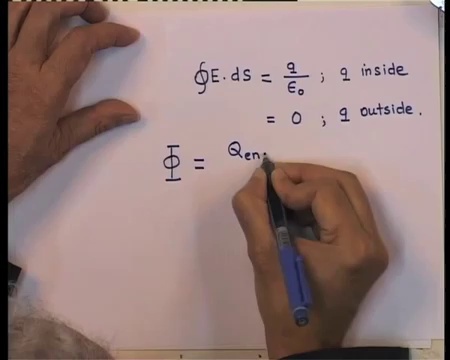 ∮E.ds = q/ϵ₀ ; q inside
= 0 ; q outside.
Φ = Qen